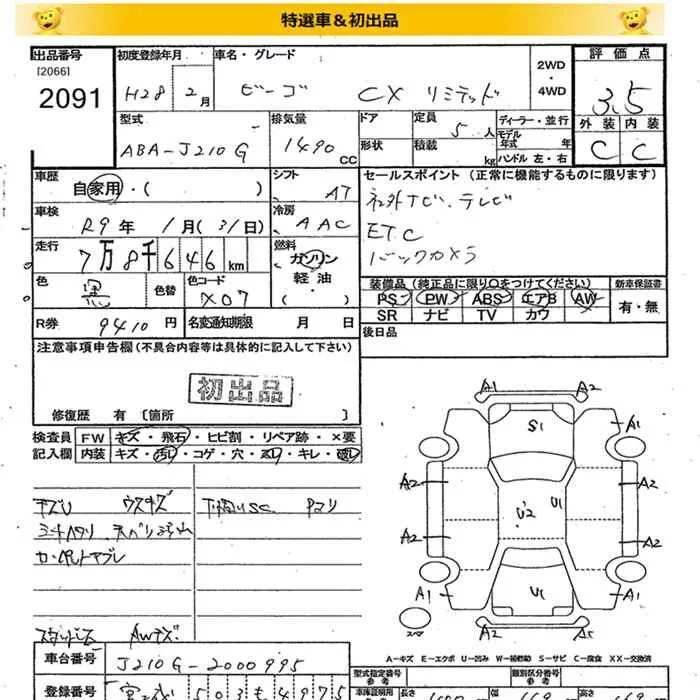 特選車&初出品
出品番号
[2066]
2091
初度登録年月
H28 2月
車名・グレード
ビーゴ CX リミテッド
2WD
・
4WD
評価点
3.5
外装 内装
C C
型式
ABA-J210G
排気量
1490 CC
ドア
形状
定員 5人
積載 kg
ディーラー・並行
モデル
年式 年
ハンドル 左・右
車歴
自家用・( )
シフト
AT
セールスポイント (正常に機能するものに限ります)
社外ナビ、テレビ
ETC
バックカメラ
車検
R9年 1月(31日)
冷房
AAC
走行
7万8千646km
燃料
ガソリン
軽油・
( )
色
黒
色替
色コード
X07
装備品 (純正品に限り○をつけてください)
PS PW ABS エアB AW
SR ナビ TV カワ
新車保証書
有・無
R券
9410円
名変通知期限 月 日
後日品
注意事項申告欄(不具合内容等は具体的に記入して下さい)
初出品
修復歴 有 [箇所 ]
検査員
記入欄
FW キズ・飛石・ヒビ割・リペア跡・×要
内装 キズ・汚れ・コゲ・穴・スレ・キレ・破レ
キズU ウスキズ
下廻りSC Pコリ
シートヘタリ
カーペットヤブレ
スタッドレス AWキズ
A1 A2
S1
A1 A1
A2 A2
U2 U1
A2 A2
U1
A1 A1
スペア
A2
A-キズ E-エクボ U-凹み W-補修跡 S-サビ C-腐食 XX-交換済
車台番号
J210G-2000995
登録番号
宮城 503も4975
型式指定番号
参考
類別区分番号
参考
車庫証明用
長さ 幅 高さ